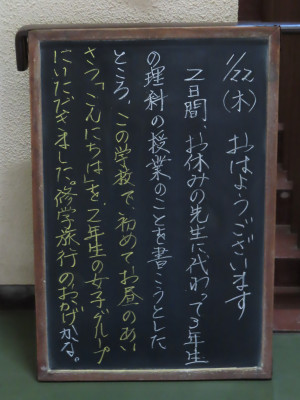 1/22(木) おはようございます
2日間、お休みの先生に代わって3年生
の理科の授業のことを書こうとした
ところ、この学校で初めてお昼のあい
さつ「こんにちは」を、2年生の女子グループ
にいただきました。修学旅行のおかげかな。